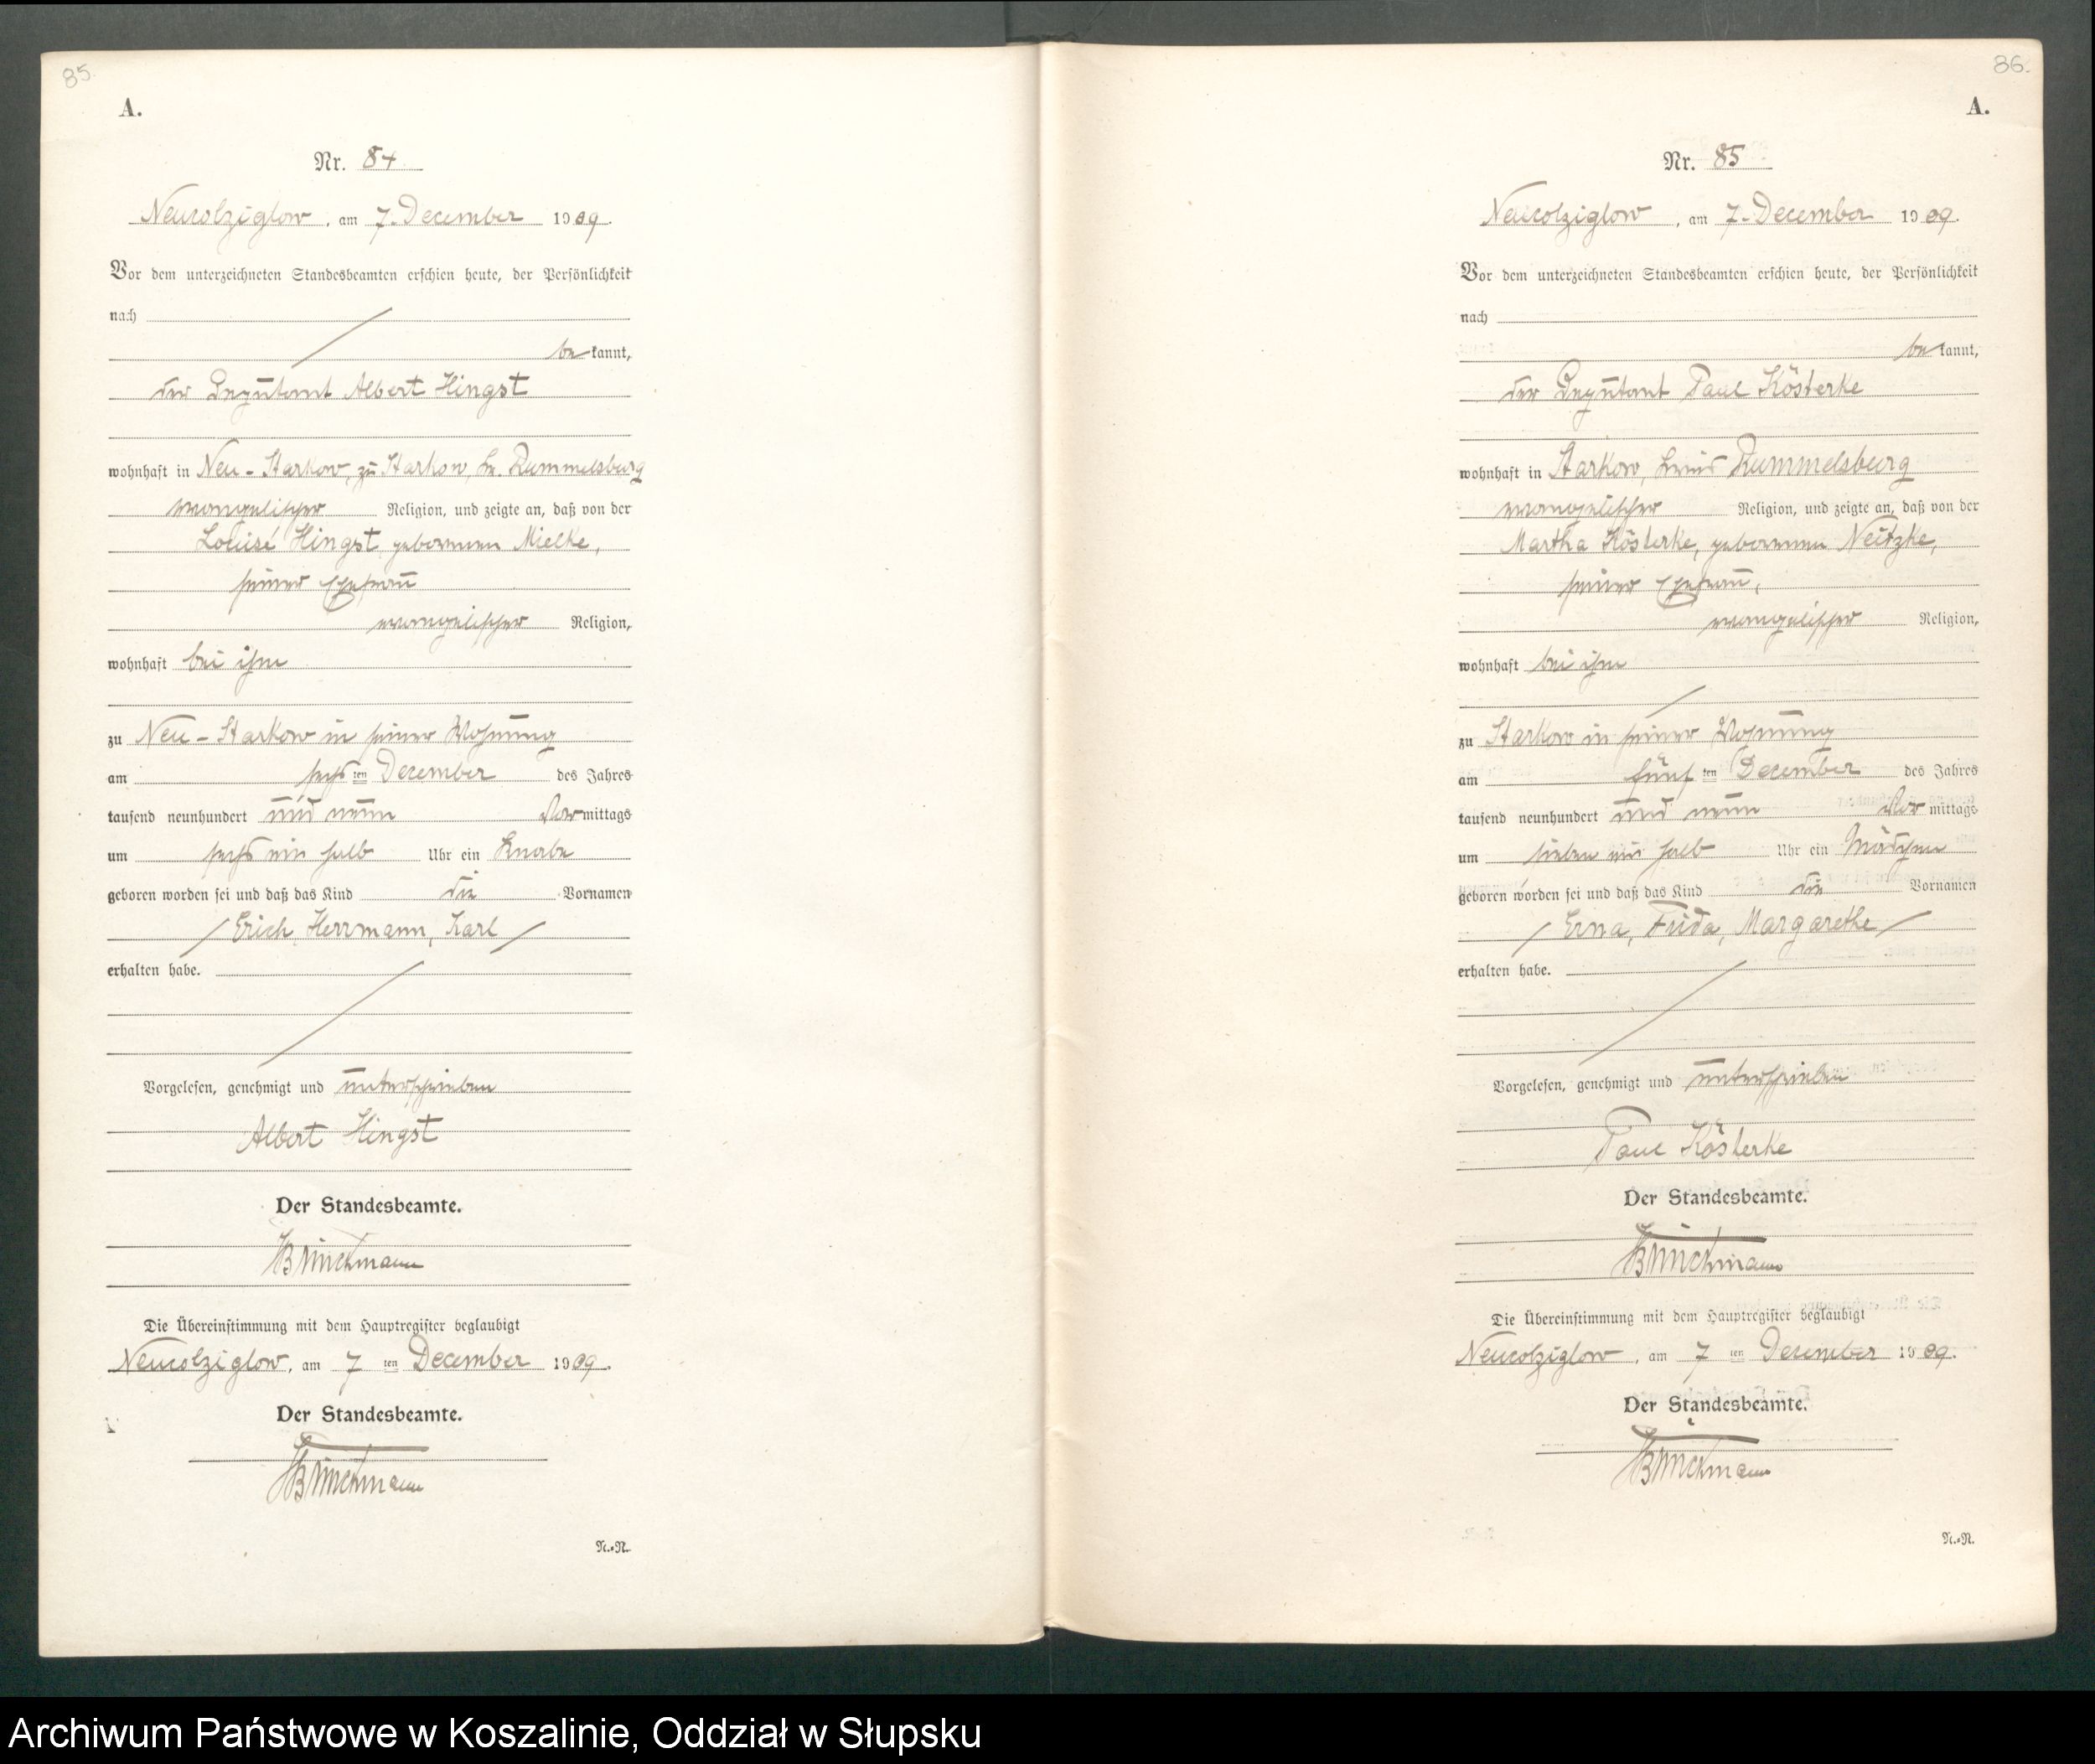 85.
A.
Nr. 84
Neukolziglow, am 7. December 1909.
Vor dem unterzeichneten Standesbeamten erschien heute, der Persönlichkeit
nach
bekannt,
der Deputant Albert Hingst
wohnhaft in Neu-Starkow, zu Starkow, Kr. Rummelsburg
evangelischer Religion, und zeigte an, daß von der
Louise Hingst geborenen Mielke,
seiner Ehefrau
evangelischer Religion,
wohnhaft bei ihm
zu Neu-Starkow in seiner Wohnung
am sechsten December des Jahres
tausend neunhundert und neun Vormittags
um sechs ein halb Uhr ein Knabe
geboren worden sei und daß das Kind die Vornamen
Erich, Herrmann, Karl
erhalten habe.
Vorgelesen, genehmigt und unterschrieben
Albert Hingst
Der Standesbeamte.
Brüchmann
Die Übereinstimmung mit dem Hauptregister beglaubigt
Neukolziglow, am 7 ten December 1909.
Der Standesbeamte.
Brüchmann
N.-N.
86.
A.
Nr. 85
Neukolziglow, am 7. December 1909.
Vor dem unterzeichneten Standesbeamten erschien heute, der Persönlichkeit
nach
bekannt,
der Deputant Paul Kösterke
wohnhaft in Starkow, Kreis Rummelsburg
evangelischer Religion, und zeigte an, daß von der
Martha Kösterke, geborenen Neitzke,
seiner Ehefrau,
evangelischer Religion,
wohnhaft bei ihm
zu Starkow in seiner Wohnung
am fünften December des Jahres
tausend neunhundert und neun Vormittags
um sieben ein halb Uhr ein Mädchen
geboren worden sei und daß das Kind die Vornamen
Erna, Frida, Margarethe
erhalten habe.
Vorgelesen, genehmigt und unterschrieben
Paul Kösterke
Der Standesbeamte.
Brüchmann
Die Übereinstimmung mit dem Hauptregister beglaubigt
Neukolziglow, am 7 ten December 1909.
Der Standesbeamte.
Brüchmann
N.-N.
Archiwum Państwowe w Koszalinie, Oddział w Słupsku